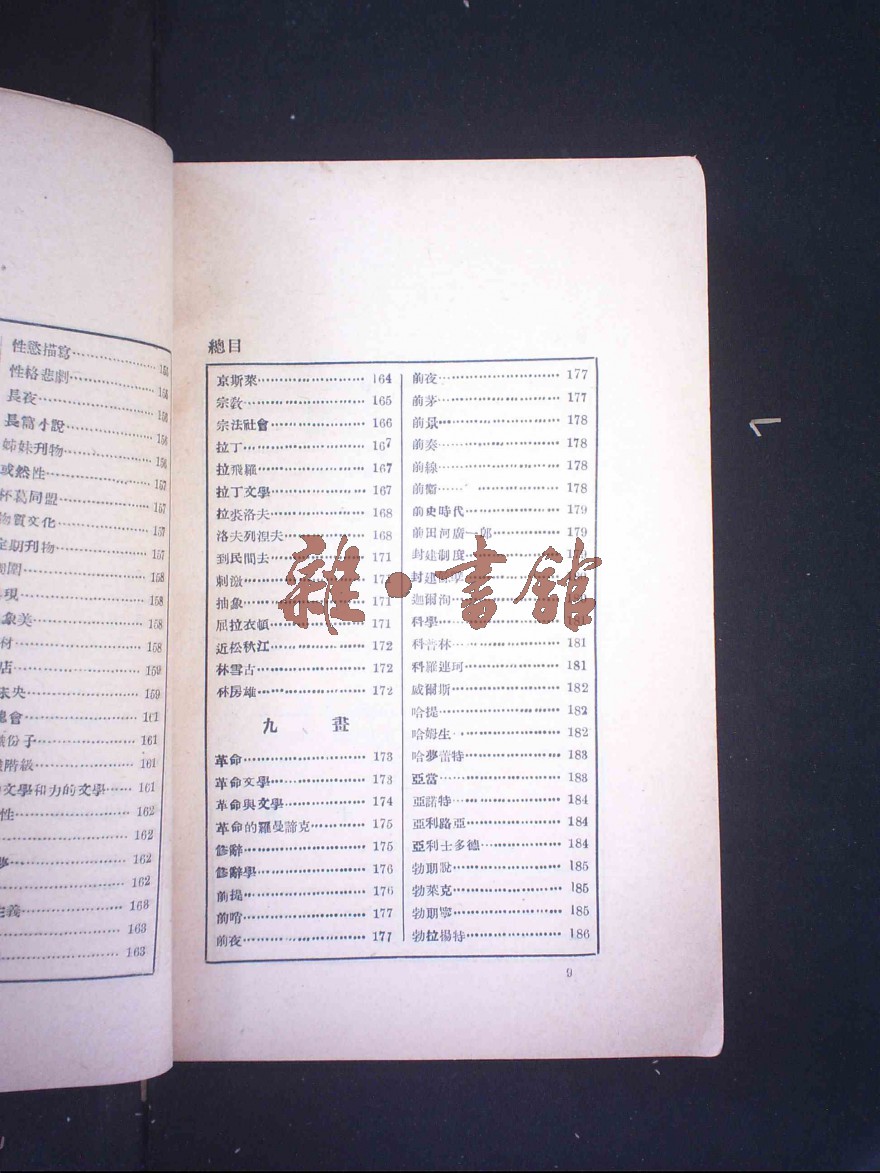 性慾描寫
性格悲劇
長夜
長篇小說 156
姊妹刊物 156
或然性 157
杯葛同盟 157
物質文化 157
定期刊物 157
158
現 158
象美 158
材 158
店 159
未央 159
總會 161
份子 161
階級 161
文學和力的文學 161
性 162
162
夢 162
162
主義 163
163
163
總目
京斯萊 164
宗教 165
宗法社會 166
拉丁 167
拉飛羅 167
拉丁文學 167
拉裘洛夫 168
洛夫列湼夫 168
到民間去 171
刺激
抽象 171
屈拉衣頓 171
近松秋江 172
林雪古 172
林房雄 172
九畫
革命 173
革命文學 173
革命與文學 174
革命的羅曼諦克 175
修辭 175
修辭學 176
前提 176
前哨 177
前夜 177
前夜 177
前茅 177
前景 178
前奏 178
前線 178
前衞 178
前史時代 179
前田河廣一郎 179
封建制度
封建
迦爾洵
科學 181
科普林 181
科羅連珂 181
威爾斯 182
哈提 182
哈姆生 182
哈夢雷特 183
亞當 183
亞諾特 184
亞利路亞 184
亞利士多德 184
勃期說 185
勃萊克 185
勃期寧 185
勃拉楊特 186
9
雜·書館